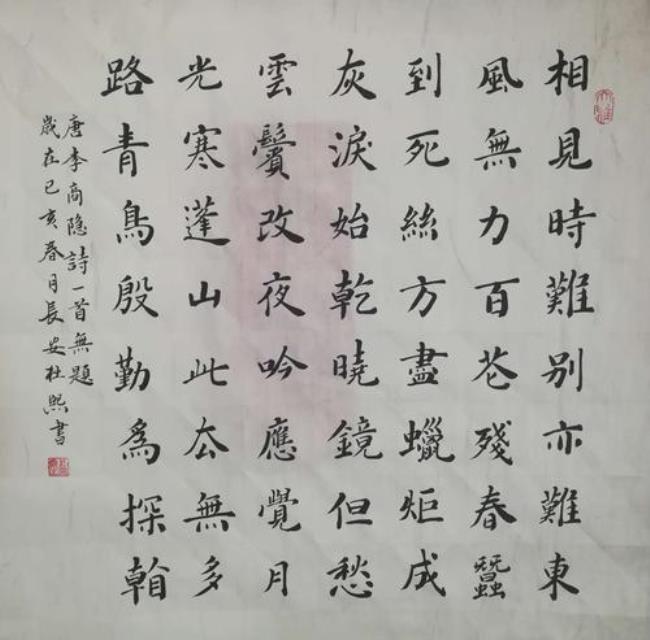 相見時難别亦難東
風無力百花殘春蠶
到死絲方盡蠟炬成
灰淚始乾曉鏡但愁
雲鬢改夜吟應覺月
光寒蓬山此去無多
路青鳥殷勤爲探看
唐李商隐詩一首無題
歲在己亥春月長安杜熙書